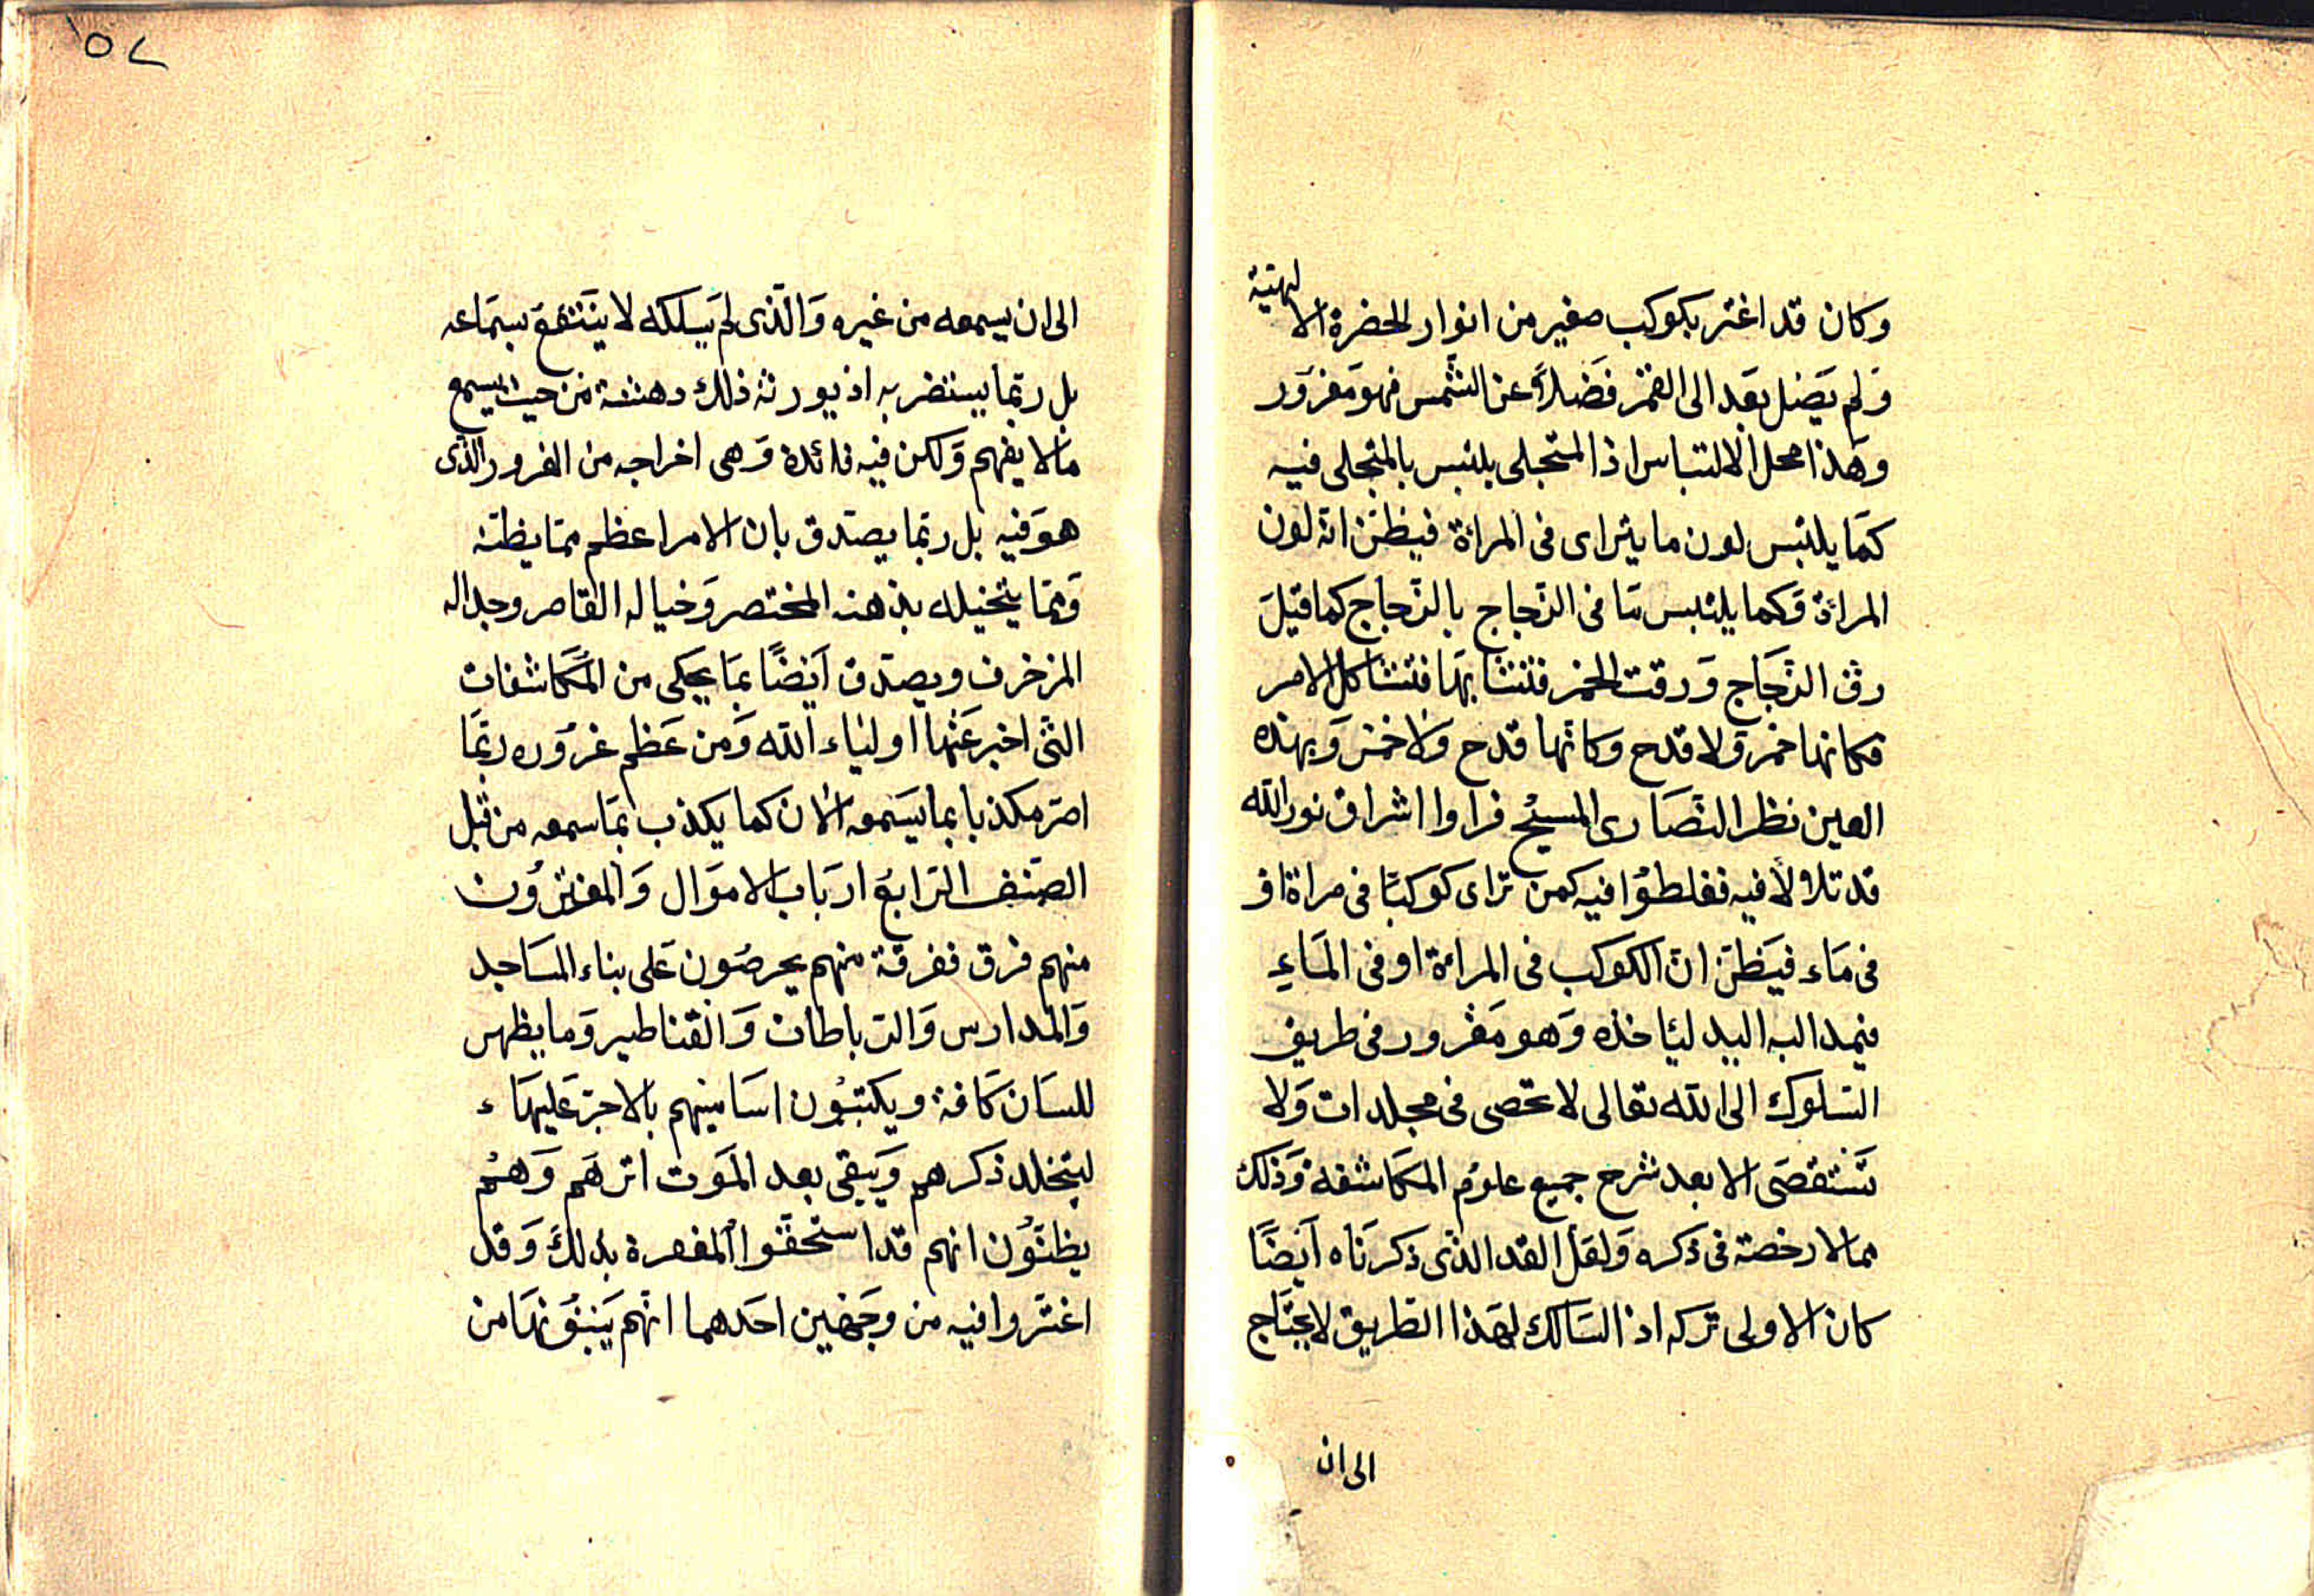 وكان قد اغتر بكوكب صغير من انوار الحضرة الالهية
وَلم يَصل بعَد الى القمَر فَضلاً عن الشّمس فهو مَغرَور
وهَذا محل الالتباس اذ المتجلى يلتبس بالمتجلى فيه
كمَا يلتبس لون ما يتراى فى المراءة فيظنّ انّه لون
المراءة وَكما يلتبس مَا فى الزّجاج بالزّجاج كما قيلَ
رق الزّجَاج وَرقت الخمر فتشابهَا فتشاكل الامر
فكانها خمر وَلا قدح وكانّها قدح وَلا خمر وَبهذه
العين نظر النّصَارى المسيْح فراوا اشراق نور الله
قد تلالأ فيه فغلطوُا فيه كمن تراى كوكبًا فى مراة او
فى مَاء فيَظنّ انّ الكوكب فى المراءة او فى المَاءِ
فيمد اليه اليد ليَاخذه وَهو مَغرور فى طريق
السّلوك الى الله تعالى لا تحصى فى مجلدات وَلا
تستقصَى الا بعد شرح جميع علوُم المكَاشفة وَذلك
مما لا رخصة فى ذكره وَلعَل القد الذى ذكرنَاه اَيضًا
كان الاولى تركه اذ السَالك لهَذا الطّريق لا يحتَاج
الى ان
٥٧
الى ان يسمعه من غيره وَالّذى لم يَسلكه لا ينَتفعَ بسمَاعه
بل ربّما يستضر به اذ يورثه ذلك دهشة من حيث يسمع
مَالا يفهم وَلكن فيه فائدة وَهى اخراجه من الغرور الّذى
هوَ فيه بل ربّما يصدّق بان الامر اعظم ممّا يظنّه
وَممّا يتخيله بذهنه المختصر وَخياله القاصر وجداله
المزخرف ويصدّق اَيضًا بمَا يحكى من المكَاشفات
التّى اخبر عَنْها اوليَاء الله وَمن عَظم غروُره ربّمَا
اصرّ مكذبا بما يسَمعه الان كما يكذب بمَا سمعه من قبل
الصّنف الرّابعَ ارباب الاموَال وَالمغترّوُن
منهم فرق ففرقة منهم يحرصُون عَلى بناء المسَاجد
وَالمدارس وَالرّباطات وَالقناطير وَما يظهر
للسَان كَافة ويكتبُوُن اسَاميهم بالاجرّ عَليهَاء
ليتخلد ذكرهم وَيبَقى بعد الموَت اثرهَم وَهمُ
يظنّوُن انهم قد استحقّوا المغفرة بذلك وَقد
اغترّوا فيه من وجَهين احَدهما انّهم يَبنوُنهَا من